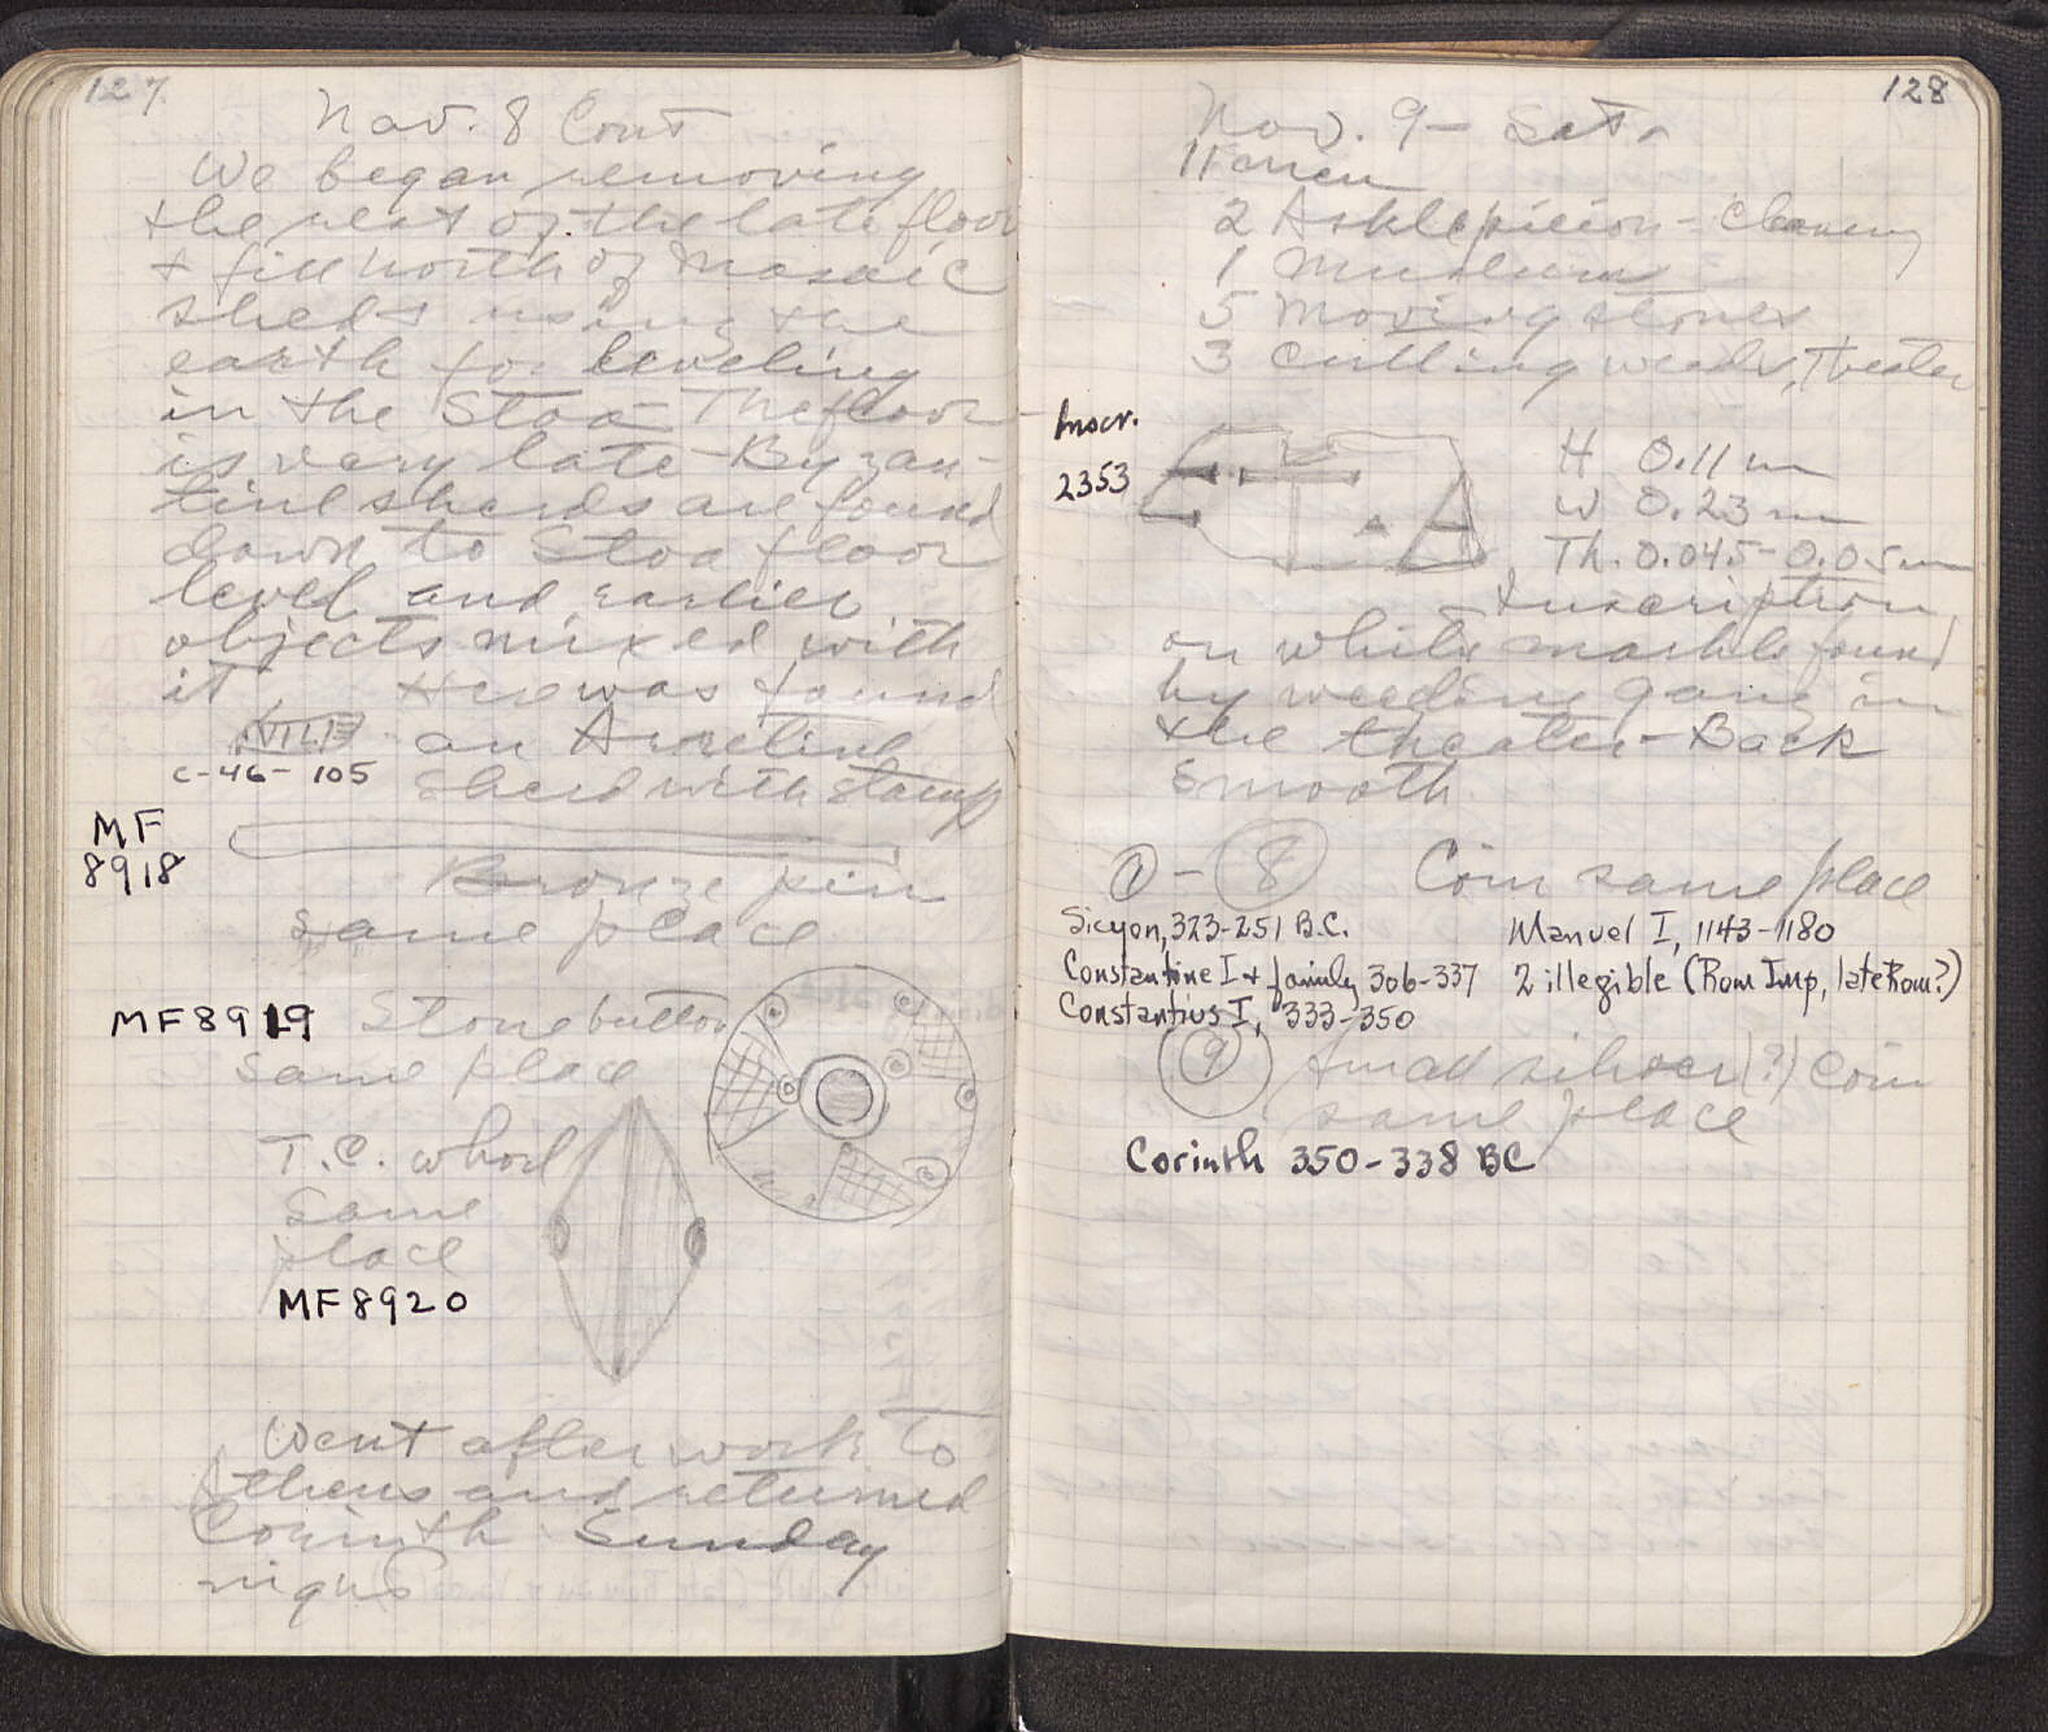 127
Nov. 8 Cont
We began removing
the rest of the late floor
+ fill north of Mosaic
sheds using the
earth for leveling
in the Stoa - The floor
is very late - Byzan-
tine sherds are found
down to Stoa floor
level and earlier
objects mixed with
it. Here was found
an Arretine
C-46-105
sherd with stamp
MF
8918
Bronze pin
same place
MF8919 Stone button
same place
T.C. whorl
same
place
MF8920
Went after work to
Athens and returned
Corinth Sunday
night
128
Nov. 9 - Sat.
11 men
2 Asklepieion - Cleaning
1 Museum
5 Moving stones
3 Cutting weeds, Theater
Inscr.
2353
H 0.11 m
W 0.23 m
Th. 0.045-0.05 m
Inscription
on white marble found
by weeding gang in
the theater - Back
smooth
① - ⑧ Coin same place
Sicyon, 323-251 B.C. Manuel I, 1143-1180
Constantine I + family 306-337 2 illegible (Rom Imp, late Rom?)
Constantius I, 333-350
⑨ Small silver (?) coin
same place
Corinth 350-338 BC